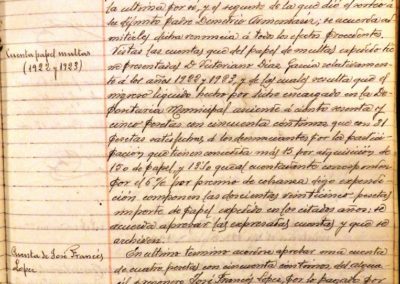 la ultima por ser, y el segundo de las que dio el vortice a
la difunta, padre Demetrio Armendariz; se acuerda ad-
mitirles dicha renuncia a todos los efectos procedentes.
Cuenta papel multas
(1922 y 1923)
Vistas las cuentas que del papel de multas expedido tie-
ne presentadas D. Victoriano Diaz Garcia relativamente
a los años 1922 y 1923, y de las cuales resulta que el
ingreso liquido hecho por dicho encargado en la De-
positaria Municipal asciende a ciento sesenta y
cinco pesetas con cincuenta centimos que con 31
pesetas satisfechas a los denunciantes por la partici-
pación que tienen concedida mas 15 por adquisición de
150 de papel, y 13'50 que al cuentadante corresponden
por el 6 % por premio de cobranza cuya expendi-
ción componen las doscientas veinticinco pesetas
importe de papel expedido en los citados años; se
acuerda aprobar las expresadas cuentas y que se
archiven.
Cuenta de José Francés
López
En ultimo termino acordose aprobar una cuenta
de cuatro pesetas con cincuenta centimos del alqua-
cil primero José Francés López por lo pagado por